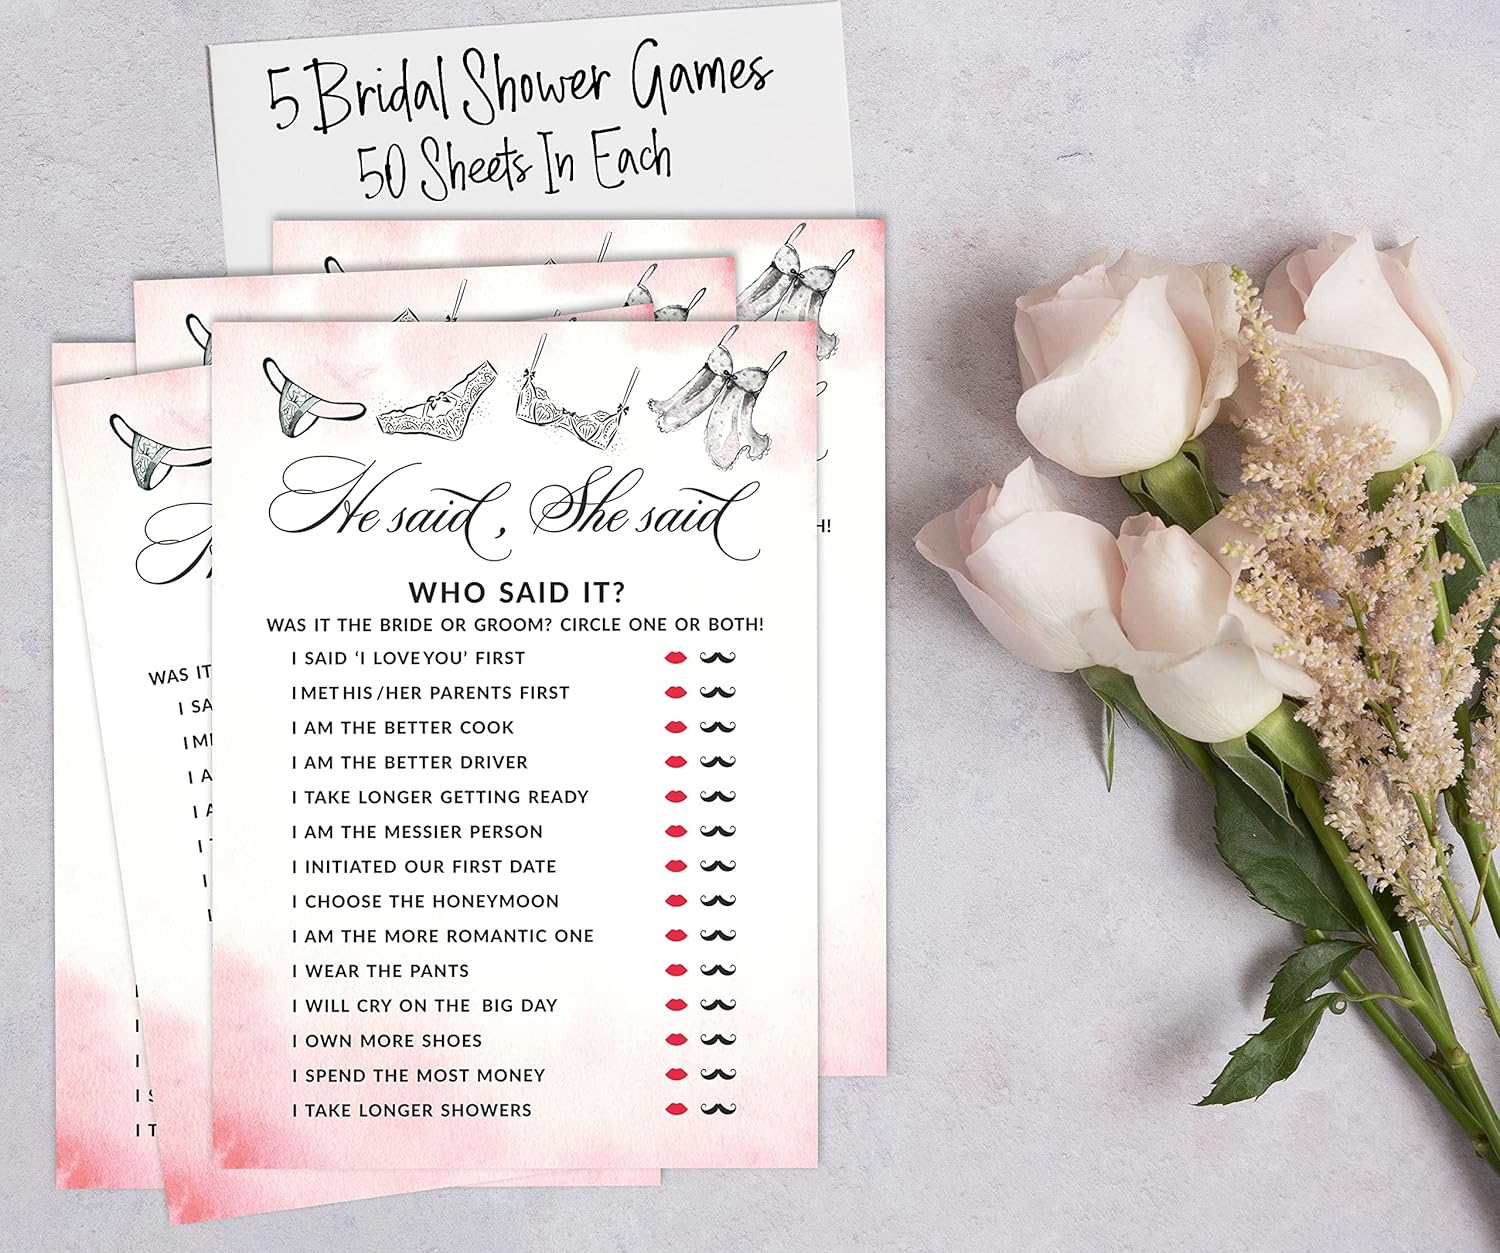 5 Bridal Shower Games
50 Sheets In Each
He said, She said
WHO SAID IT?
WAS IT THE BRIDE OR GROOM? CIRCLE ONE OR BOTH!
I SAID ‘I LOVE YOU’ FIRST
I MET HIS/HER PARENTS FIRST
I AM THE BETTER COOK
I AM THE BETTER DRIVER
I TAKE LONGER GETTING READY
I AM THE MESSIER PERSON
I INITIATED OUR FIRST DATE
I CHOOSE THE HONEYMOON
I AM THE MORE ROMANTIC ONE
I WEAR THE PANTS
I WILL CRY ON THE BIG DAY
I OWN MORE SHOES
I SPEND THE MOST MONEY
I TAKE LONGER SHOWERS
WAS IT